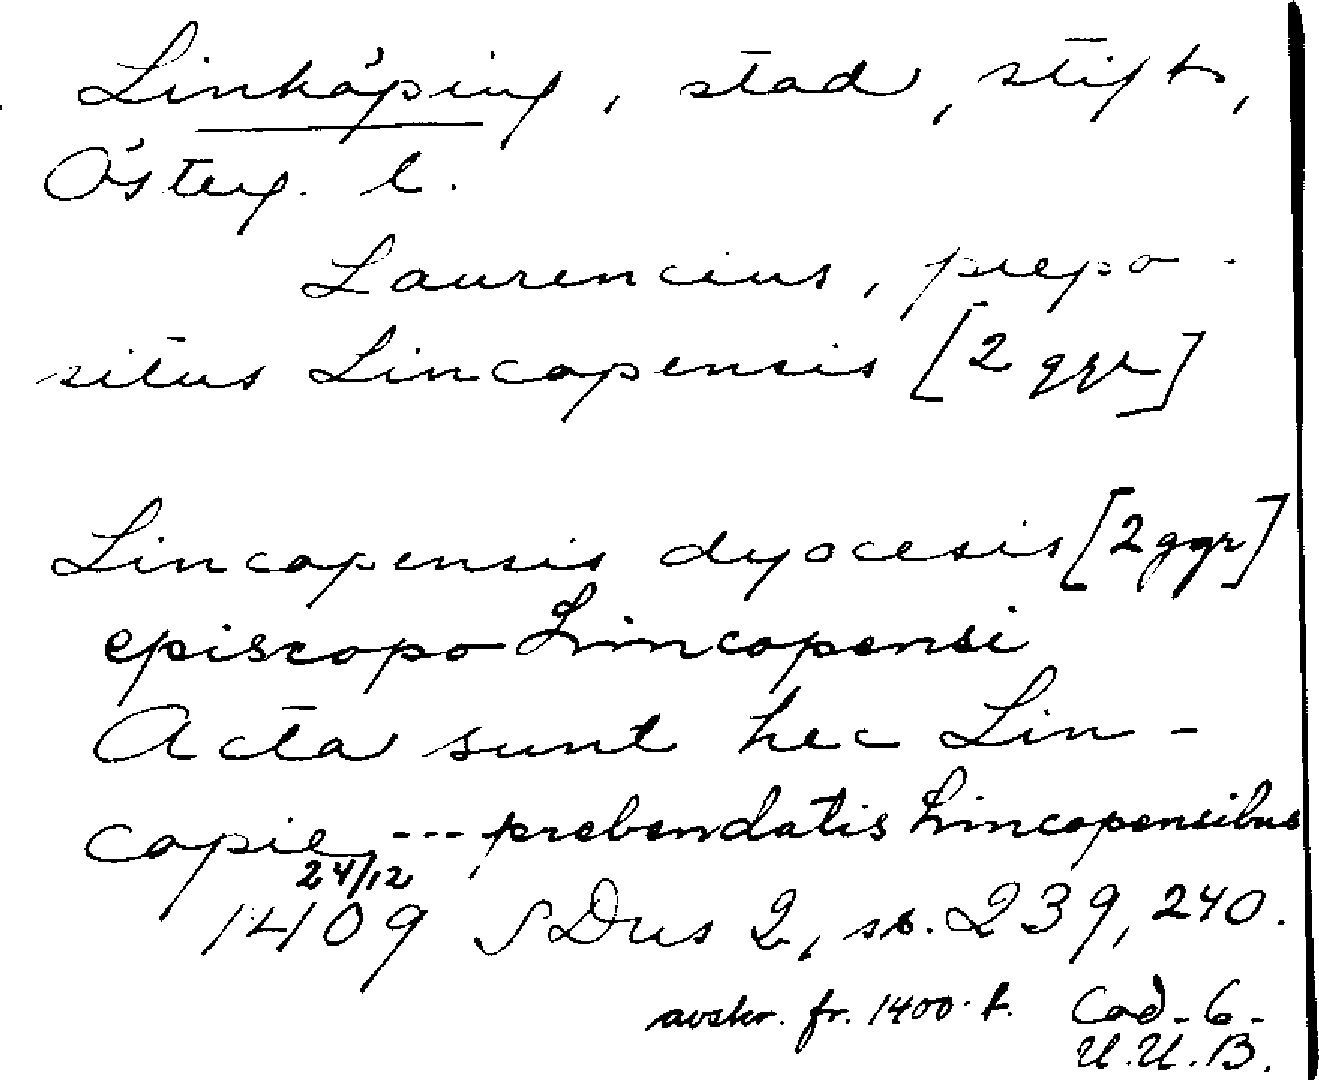 Linköping, stad, stift,
Österg. l.
Laurencius, prepo-
situs Lincopensis [2 ggr]
Lincopensis dyocesis [2 ggr]
episcopo Lincopensi
Acta sunt hec Lin-
copie, --- prebendatis Lincopensibus
24/12
1409 SDns 2, ss. 239, 240.
avskr. fr. 1400-t. Cod. 6.
U.U.B.